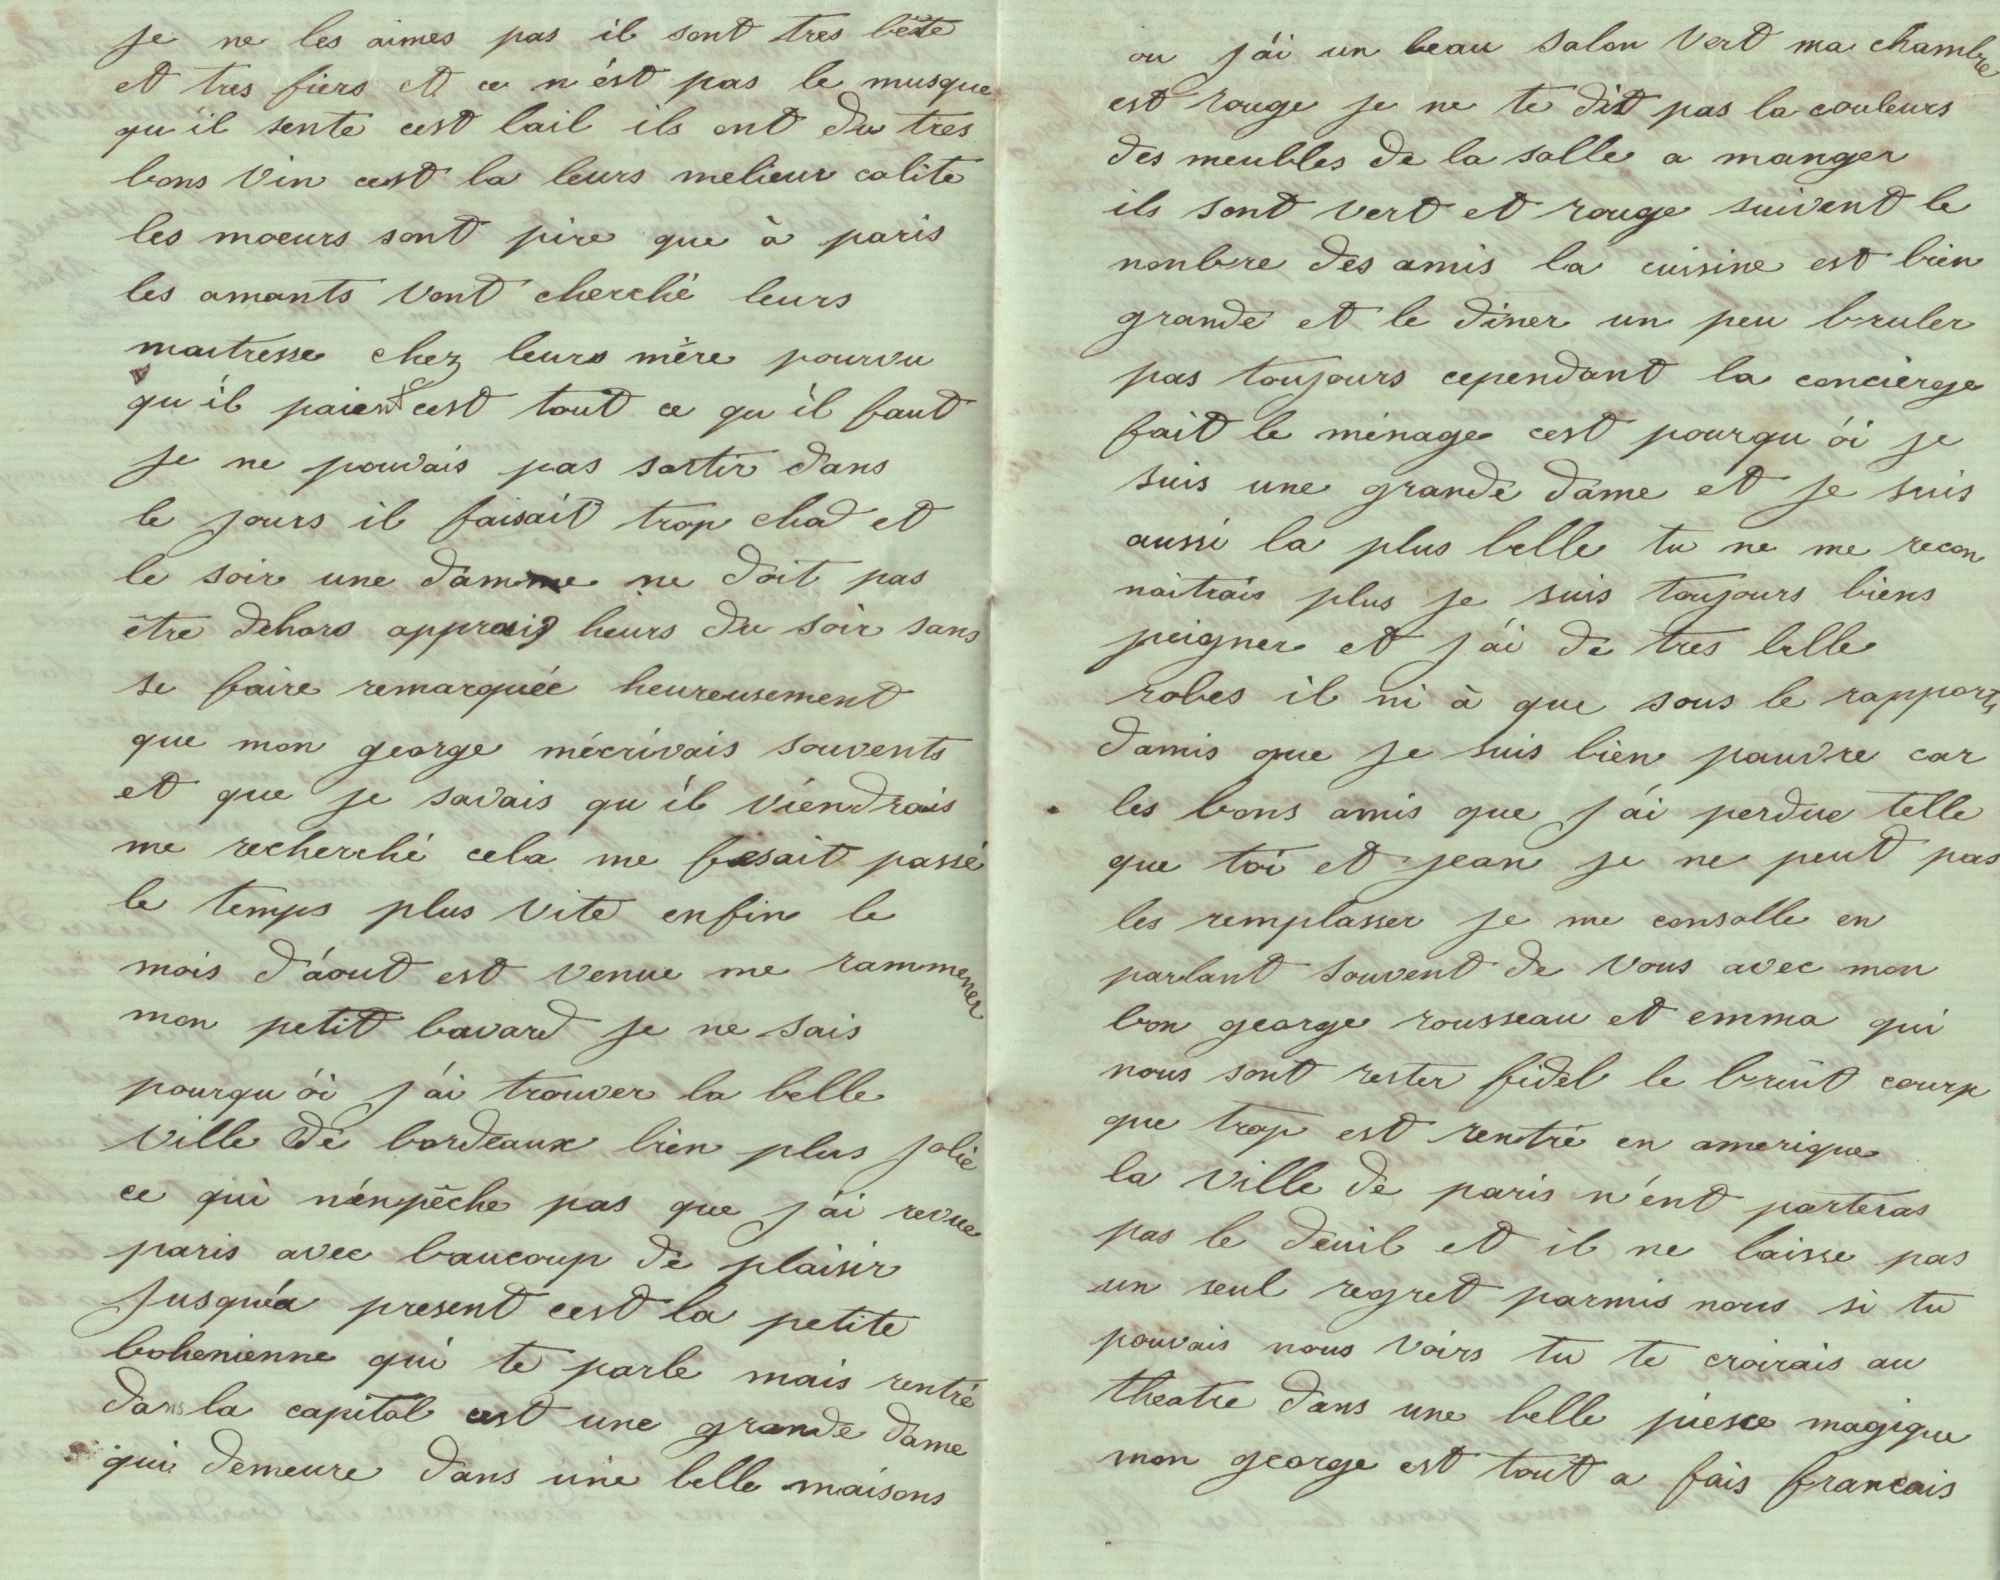 je ne les aimes pas il sont tres bête
et tres fiers et ce n'ést pas le musque
qu'il sente cest lail ils ont du tres
bons vin cest la leurs melieur calite
les moeurs sont pire que à paris
les amants vont cherché leurs
maitresse chez leurs mère pourvu
qu'il paient cest tout ce qu'il faut
je ne pouvais pas sortir dans
le jours il faisait trop chad et
le soir une damme ne doit pas
être dehors apprais 9 heurs du soir sans
se faire remarquée heureusement
que mon george mécrivais souvents
et que je savais qu'il viendrais
me recherché cela me fesait passé
le temps plus vite enfin le
mois d'áout est venue me rammener
mon petit bavard je ne sais
pourqu'oi j'ai trouver la belle
ville de bordeaux bien plus jolie
ce qui n'enpêche pas que j'ai revue
paris avec baucoup de plaisir
jusquéa present cest la petite
bohenienne qui te parle mais rentré
dans la capital cest une grande dame
qui demeure dans une belle maisons
ou j'ai un beau salon vert ma chambre
est rouge je ne te dit pas la couleurs
des meubles de la salle a manger
ils sont vert et rouge suivent le
nonbre des amis la cuisine est bien
grande et le diner un peu bruler
pas toujours cependant la concierge
fait le ménage cest pourqu'oi je
suis une grande dame et je suis
aussi la plus belle tu ne me recon
naitrais plus je suis toujours biens
peigner et j'ai de tres belle
robes il ni à que sous le rapports
damis que je suis bien pauvre car
les bons amis que j'ai perdue telle
que toi et jean je ne peut pas
les remplasser je me consolle en
parlant souvent de vous avec mon
bon george rousseau et emma qui
nous sont rester fidel le bruit courp
que trop est rentré en amerique
la ville de paris n'ent porteras
pas le deuil et il ne laisse pas
un seul regret parmis nous si tu
pouvais nous voirs tu te croirais au
theatre dans une belle piesce magique
mon george est tout a fais francais